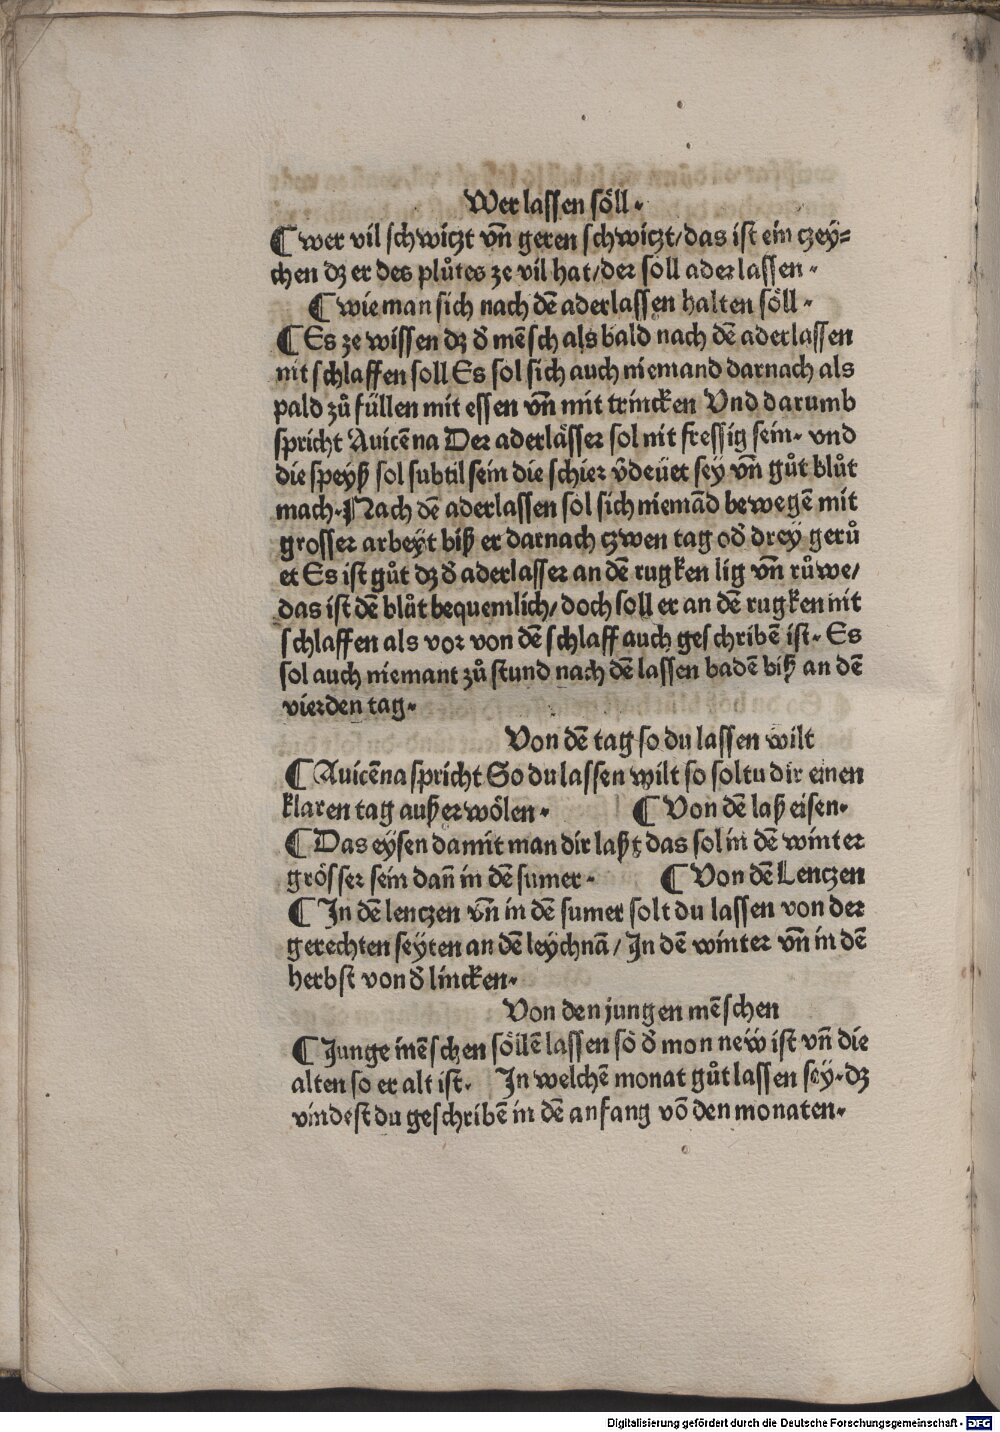 Wer lassen söll.
¶ wer vil schwiczt vn̄ geren schwiczt/das ist ein czeÿ=
chen dz er des plůtes ze vil hat/der söll aderlassen.
¶ wie man sich nach dē aderlassen halten söll.
¶ Es ze wissen dz đ mēsch als bald nach dē aderlassen
nit schlaffen soll Es sol sich auch niemand darnach als
pald zů füllen mit essen vn̄ mit trincken Vnd darumb
spricht Auicēna Der aderlässer sol nit fressig sein. vnd
die speyß sol subtil sein die schier v̄deüet seÿ vn̄ gůt blůt
mach. Nach dē aderlassen sol sich niemād bewegē mit
grosser arbeÿt biß er darnach czwen tag ođ dreÿ gerů
et Es ist gůt dz đ aderlasser an dē rugken lig vn̄ růwe/
das ist dē blůt bequemlich/ doch soll er an dē rugken nit
schlaffen als vor von dē schlaff auch geschribē ist. Es
sol auch niemant zů stund nach dē lassen badē biß an dē
vierden tag.
Von dē tag so du lassen wilt
¶ Auicēna spricht So du lassen wilt so soltu dir einen
klaren tag außerwölen. ¶ Von dē laß eisen.
¶ Das eÿsen damit man dir laßt das sol in dē winter
grösser sein dan̄ in dē sumer. ¶ Von dē Lenczen
¶ In dē lenczen vn̄ in dē sumer solt du lassen von der
gerechten seÿten an dē leÿchnā/ In dē winter vn̄ in dē
herbst von đ lincken.
Von den jungen mēschen
¶ Junge mēschen söllē lassen so đ mon neẅ ist vn̄ die
alten so er alt ist. In welchē monat gůt lassen seÿ. dz
vindest du geschribē in dē anfang vō den monaten.
Digitalisierung gefördert durch die Deutsche Forschungsgemeinschaft - DFG